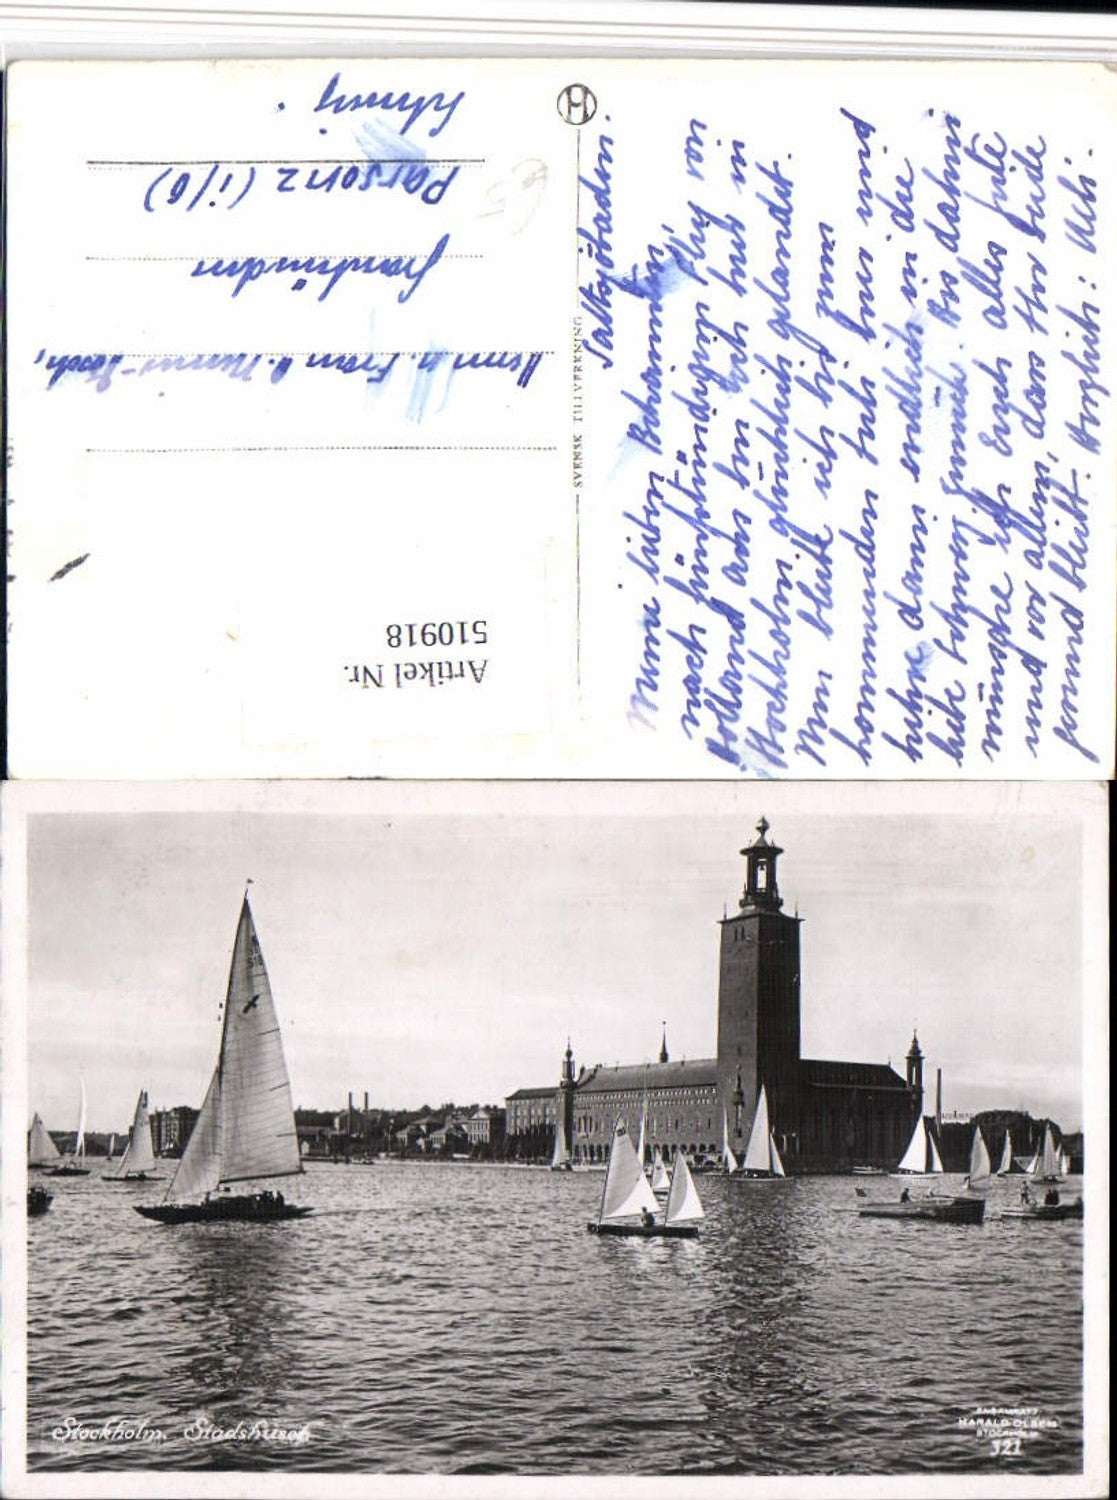 Saltsjöbaden.
Meine lieben Bekannten,
nach fünfstündigem Flug von
Holland aus bin ich gut in
Stockholm glücklich gelandet.
Nun bleibe ich bis zum
kommenden Juli hier und
kehre dann endlich in die
liebe Schweiz zurück. Bis dahin
wünsche ich Euch alles Gute
und vor allem, dass Ihr beide
gesund bleibt. Herzlich: Ueli.
SVENSK TILLVERKNING
Herrn u. Frau
Graubünden
Parsonz (i/O)
Schweiz.
Artikel Nr.
510918
Stockholm. Stadshuset
ENSAMRÄTT
HARALD OLSEN
STOCKHOLM
321